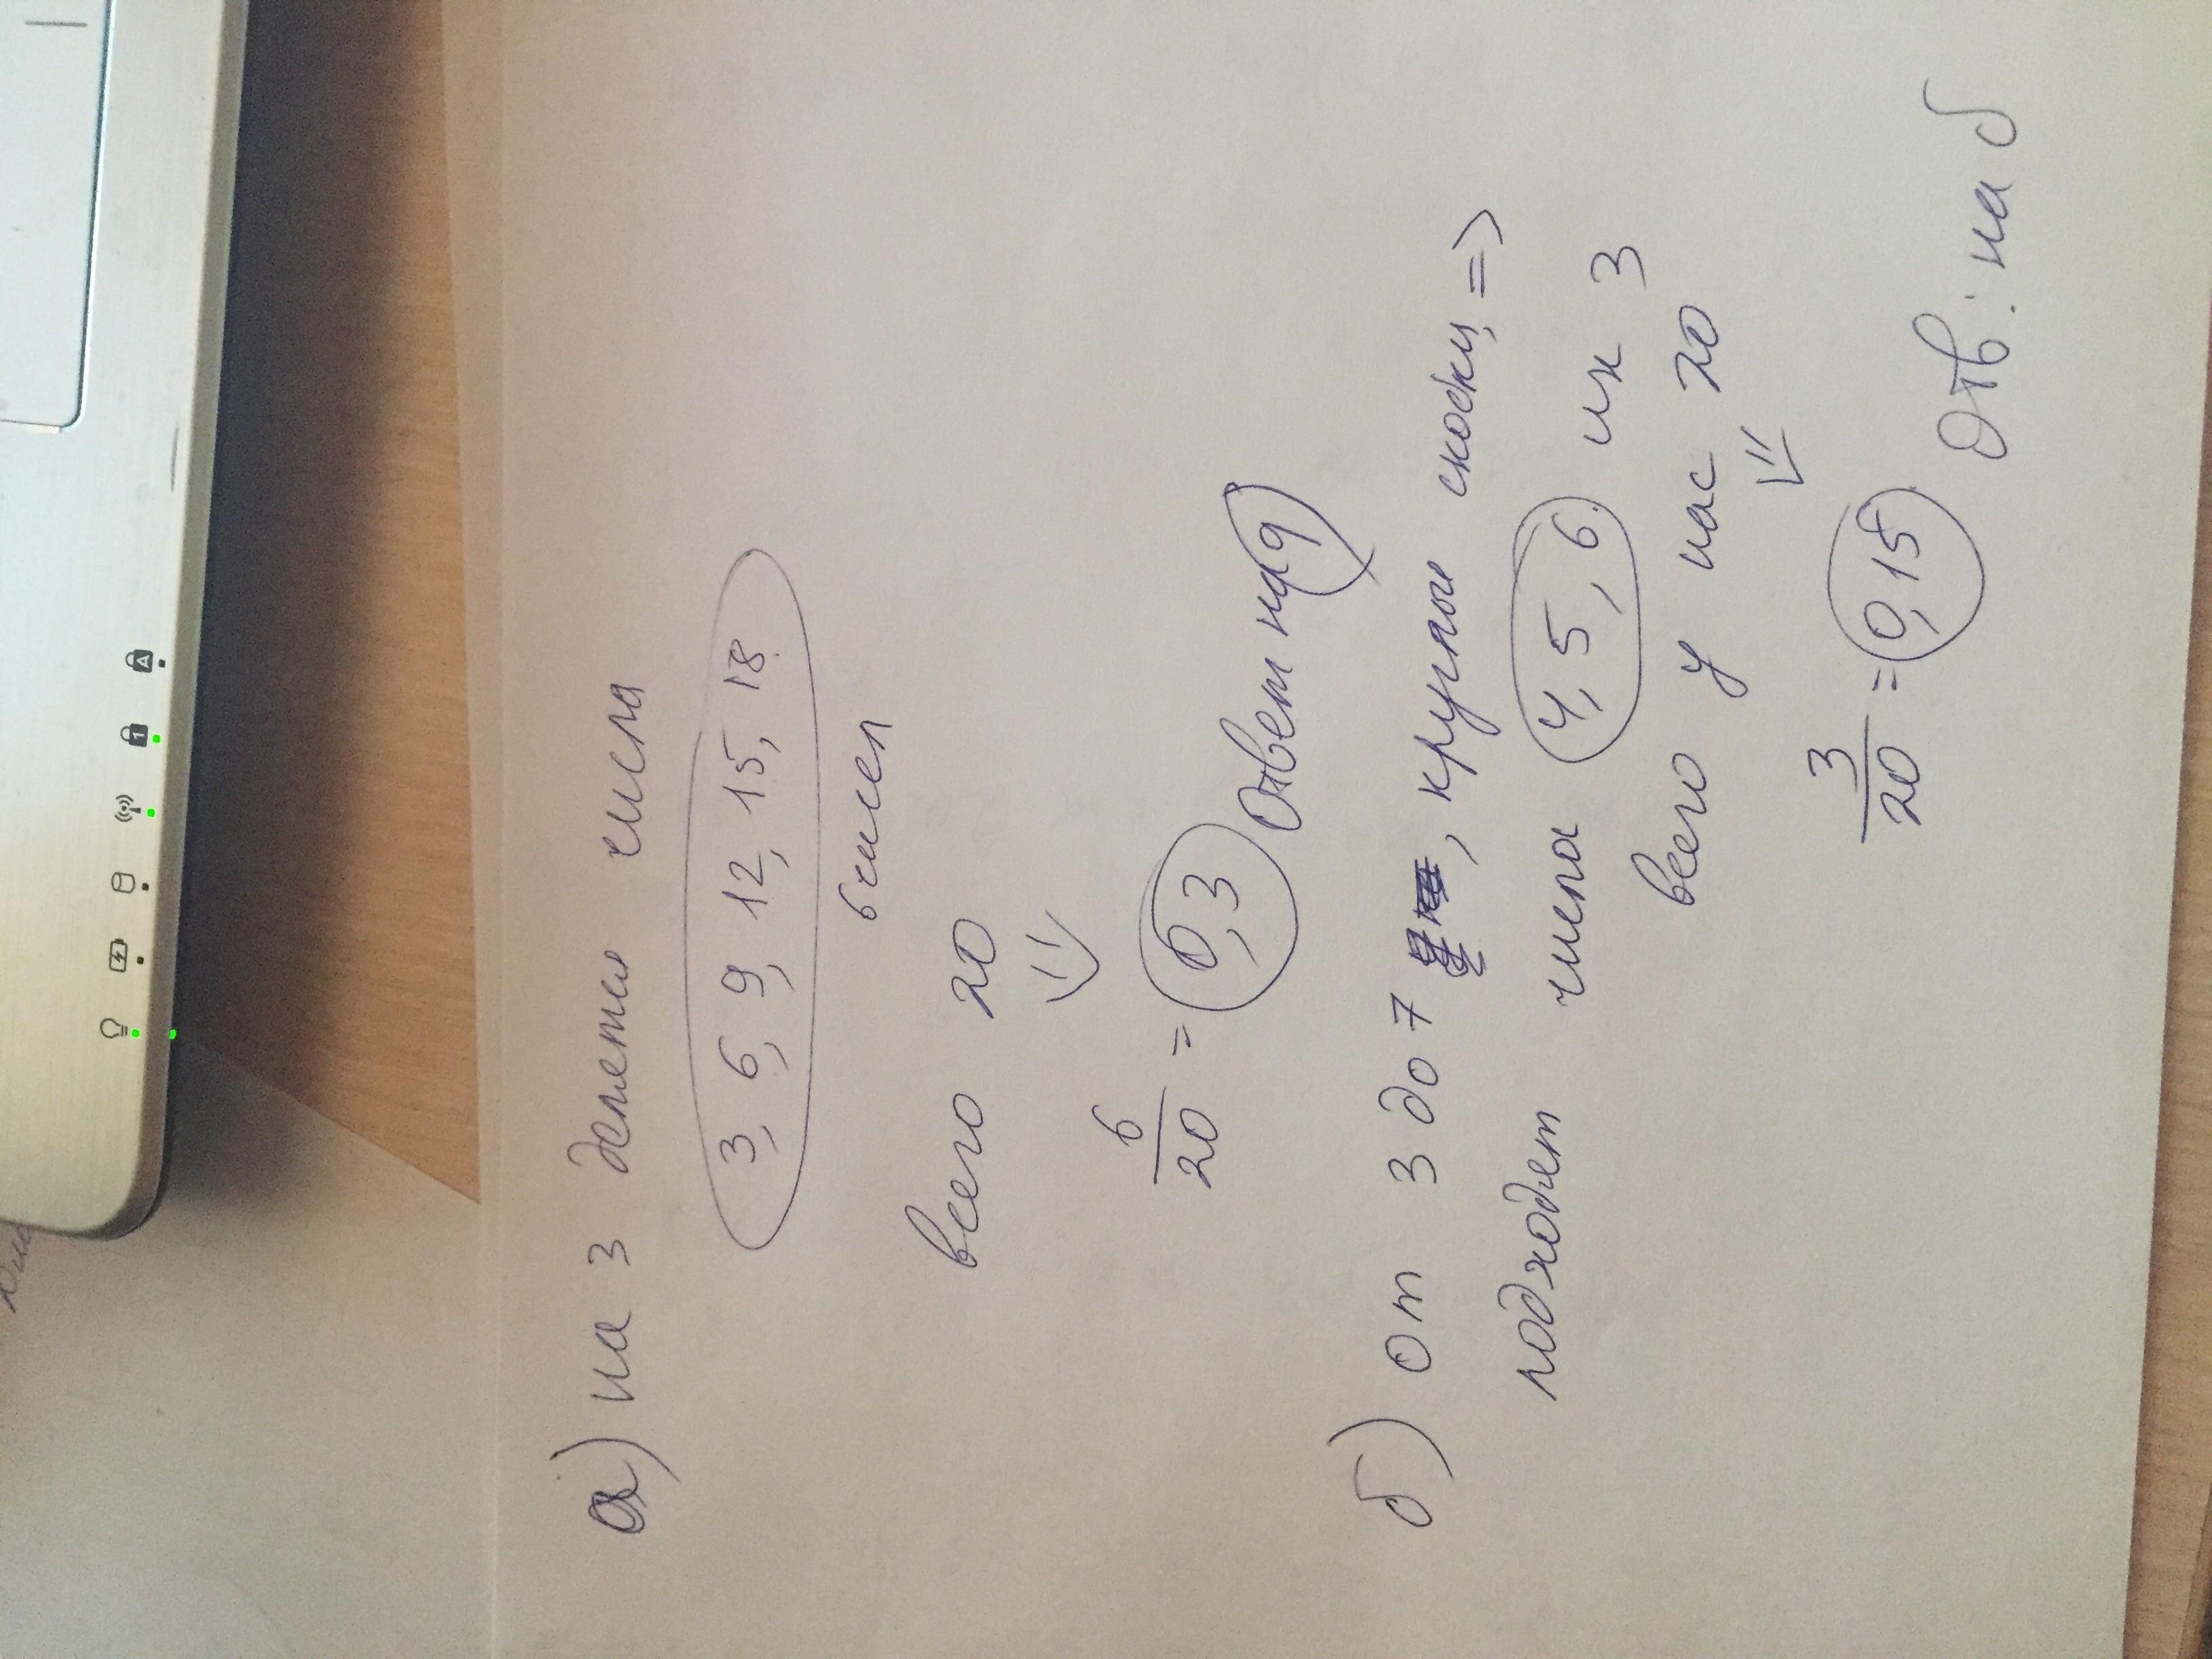 а) на 3 делятся числа
3, 6, 9, 12, 15, 18
6 чисел
всего 20
6/20 = 0,3 Ответ на а
б) от 3 до 7, круглые скобки, =>
подходят числа 4, 5, 6 их 3
всего у нас 20
3/20 = 0,15
Отв: на б